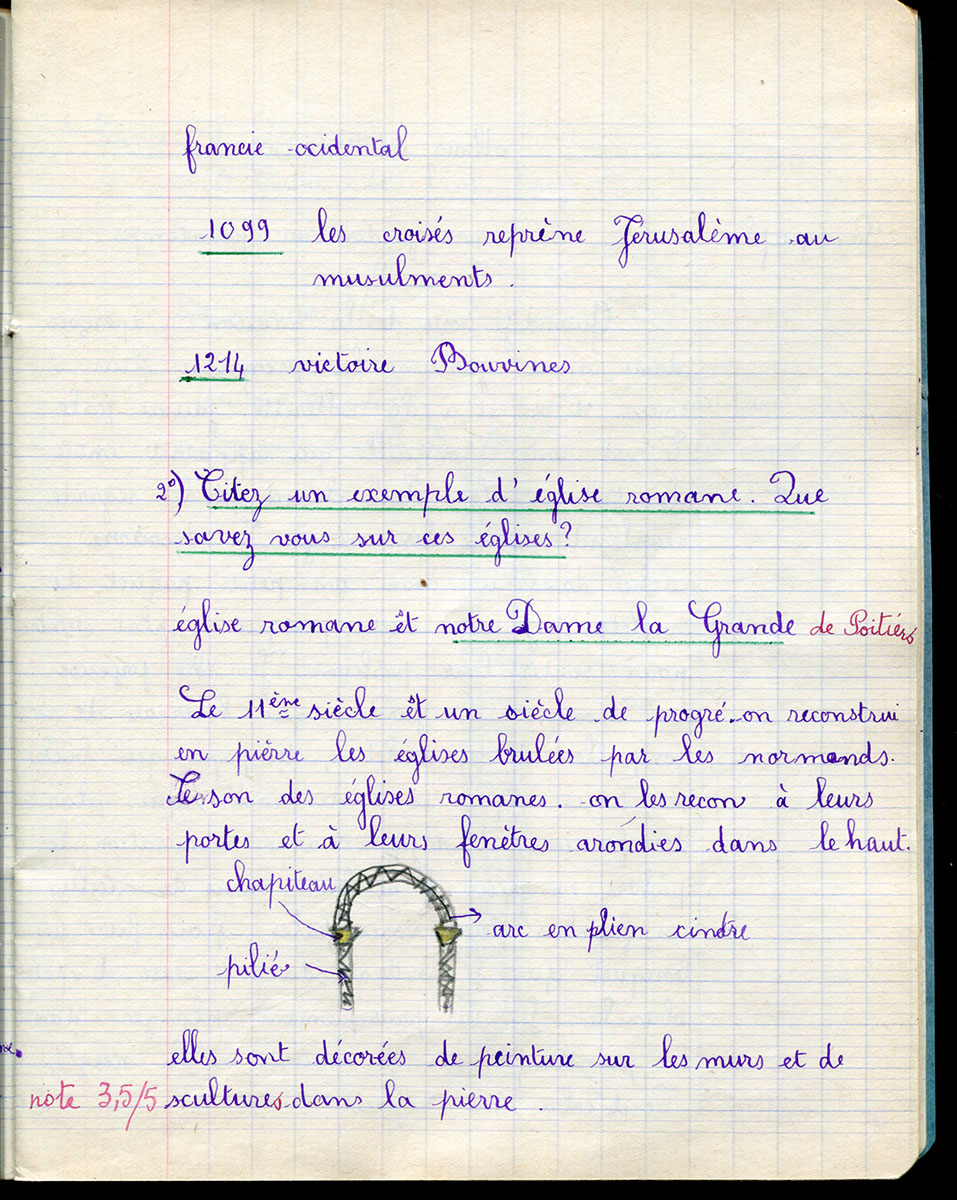 francie ocidental
1099 les croisés reprène Jérusalème au
musulments.
1214 victoire Bouvines
2°) Citez un exemple d'église romane. Que
savez vous sur ces églises?
église romane êt notre Dame la Grande de Poitiers
Le 11ème siècle êt un siècle de progré. on reconstrui
en pièrre les églises brulées par les normands.
Ce son des églises romanes. on les recon à leurs
portes et à leurs fenètres arondies dans le haut.
chapiteau
arc en plien cindre
pilié
elles sont décorées de peinture sur les murs et de
note 3,5/5 scultures dans la pierre.